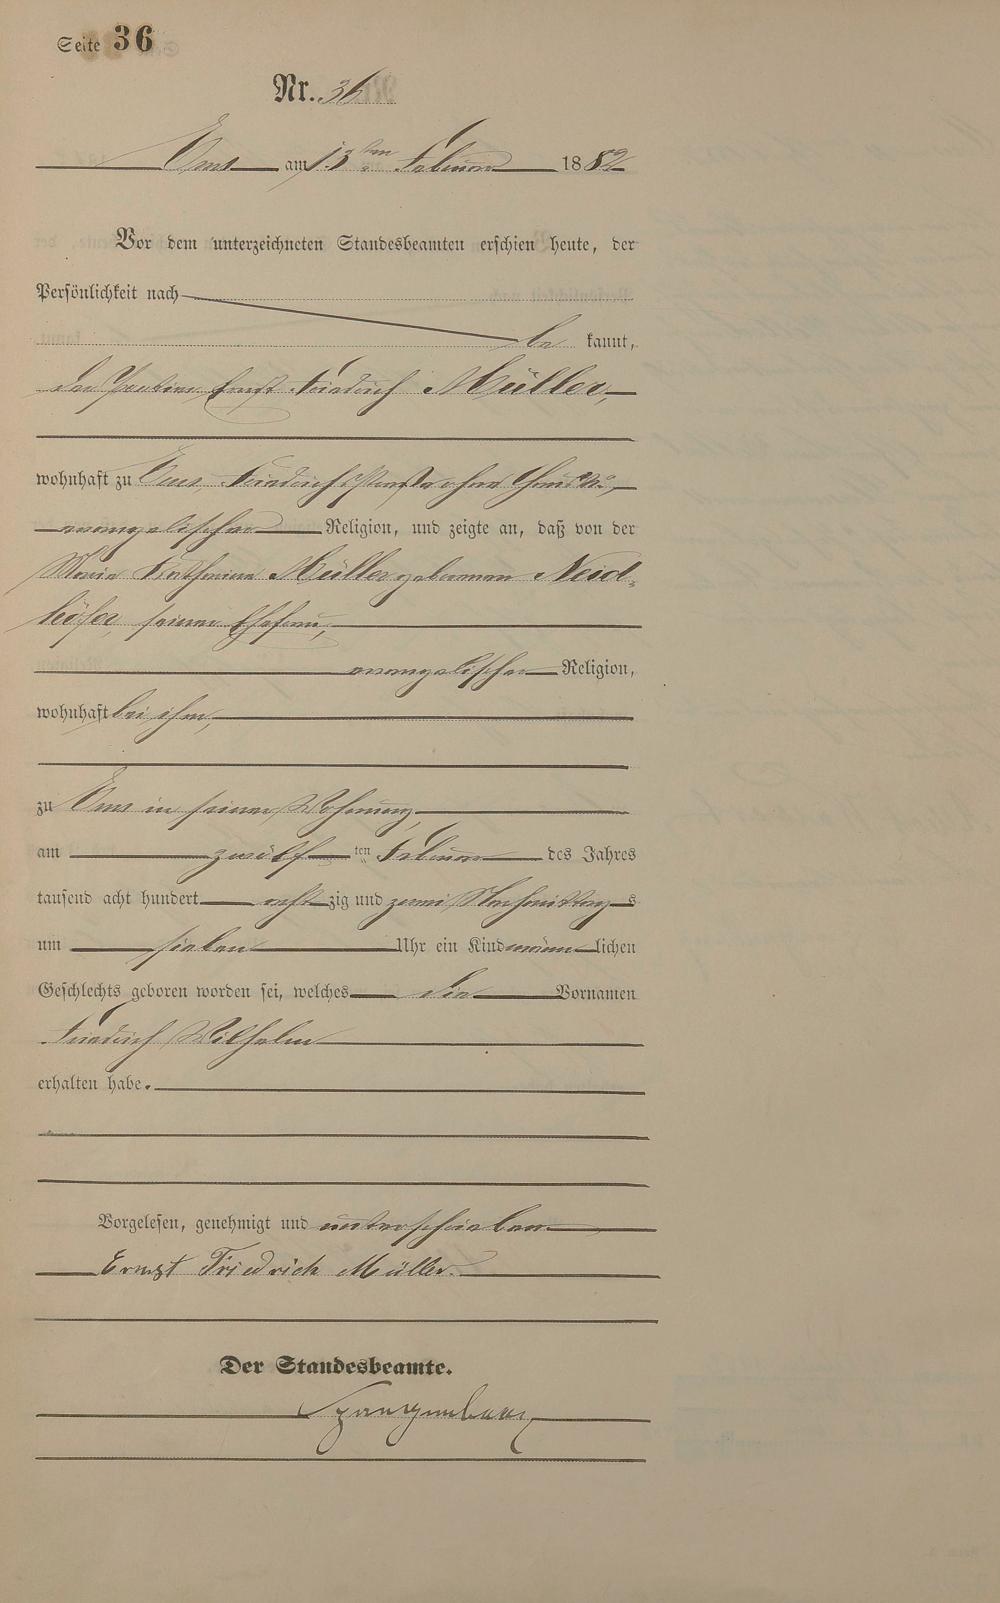 Seite 36
Nr. 36
Ems am 13ten Februar 1882
Vor dem unterzeichneten Standesbeamten erschien heute, der
Persönlichkeit nach
be kannt,
der Ernst Friedrich Müller,
wohnhaft zu Ems,
evangelischer Religion, und zeigte an, daß von der
Marie Katharina Müller geborenen Neid-
höfer, seiner Ehefrau,
evangelischer Religion,
wohnhaft bei ihm,
zu Ems in seiner Wohnung,
am zwölf ten Februar des Jahres
tausend acht hundert acht zig und zwei Nachmittag s
um sieben Uhr ein Kind männ lichen
Geschlechts geboren worden sei, welches die Vornamen
Friedrich Wilhelm
erhalten habe.
Vorgelesen, genehmigt und unterschrieben
Ernst Friedrich Müller.
Der Standesbeamte.